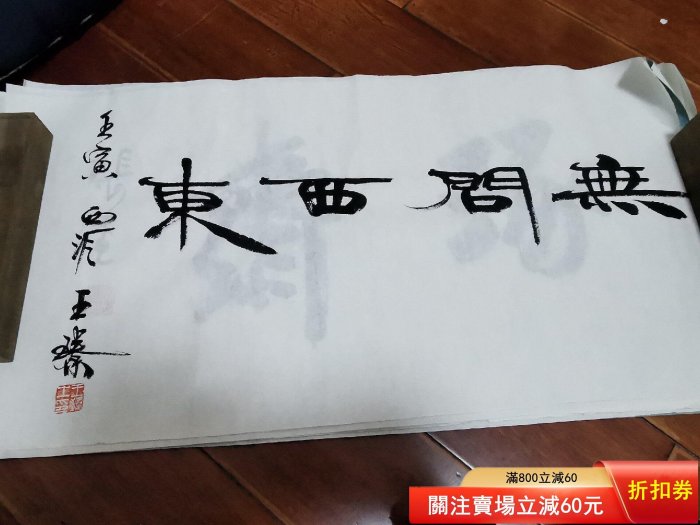 無問西東
壬寅
王
滿800立減60
關注賣場立減60元
折扣券